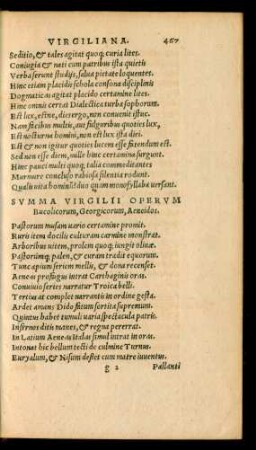 VIRGILIANA. 467
Seditio, & tales agitat quoq; curia lites.
Coniugia & nati cum patribus ista quietis
Verba serunt studijs, salua pietate loquentes.
Hinc etiam placidis schola consona disciplinis
Dogmaticas agitat placido certamine lites.
Hinc omnis certat Dialectica turba sophorum.
Est lux, estne, dies ergo, non conuenit istuc.
Nam facibus multis, aut fulguribus quoties lux,
Est nocturna homini, non est lux ista diei.
Est & non igitur quoties lucem esse fatendum est
Sed non esse diem, mille hinc certamina surgunt.
Hinc pauci multi quoq; talia commeditantes
Murmure concluso rabiosa silentia rodunt.
Qualis uita hominū duo quam monosyllaba uersant.
SVMMA VIRGILII OPERVM
Bucolicorum, Georgicorum, Aeneidos.
Pastorum musam uario certamine promit.
Ruris item docilis culturam carmine monstrat.
Arboribus uitem, prolem quoq; iungit oliuæ.
Pastorumq; palen, & curam tradit equorum.
Tunc apium seriem mellis, & dona recenset.
Aeneas profugus intrat Carthaginis oras.
Conuiuio series narratur Troica belli.
Tertius at complet narrantis in ordine gesta.
Ardet amans Dido sicum sortita supremum.
Quintus habet tumuli uaria spectacula patris.
Infernos ditis manes, & regna pererrat.
In Latium Aeneas Italas simul intrat in oras.
Intonat hic bellum tecti de culmine Turnus.
Euryalum, & Nisum deflet cum matre iuuentus.
g 2 Pallanti